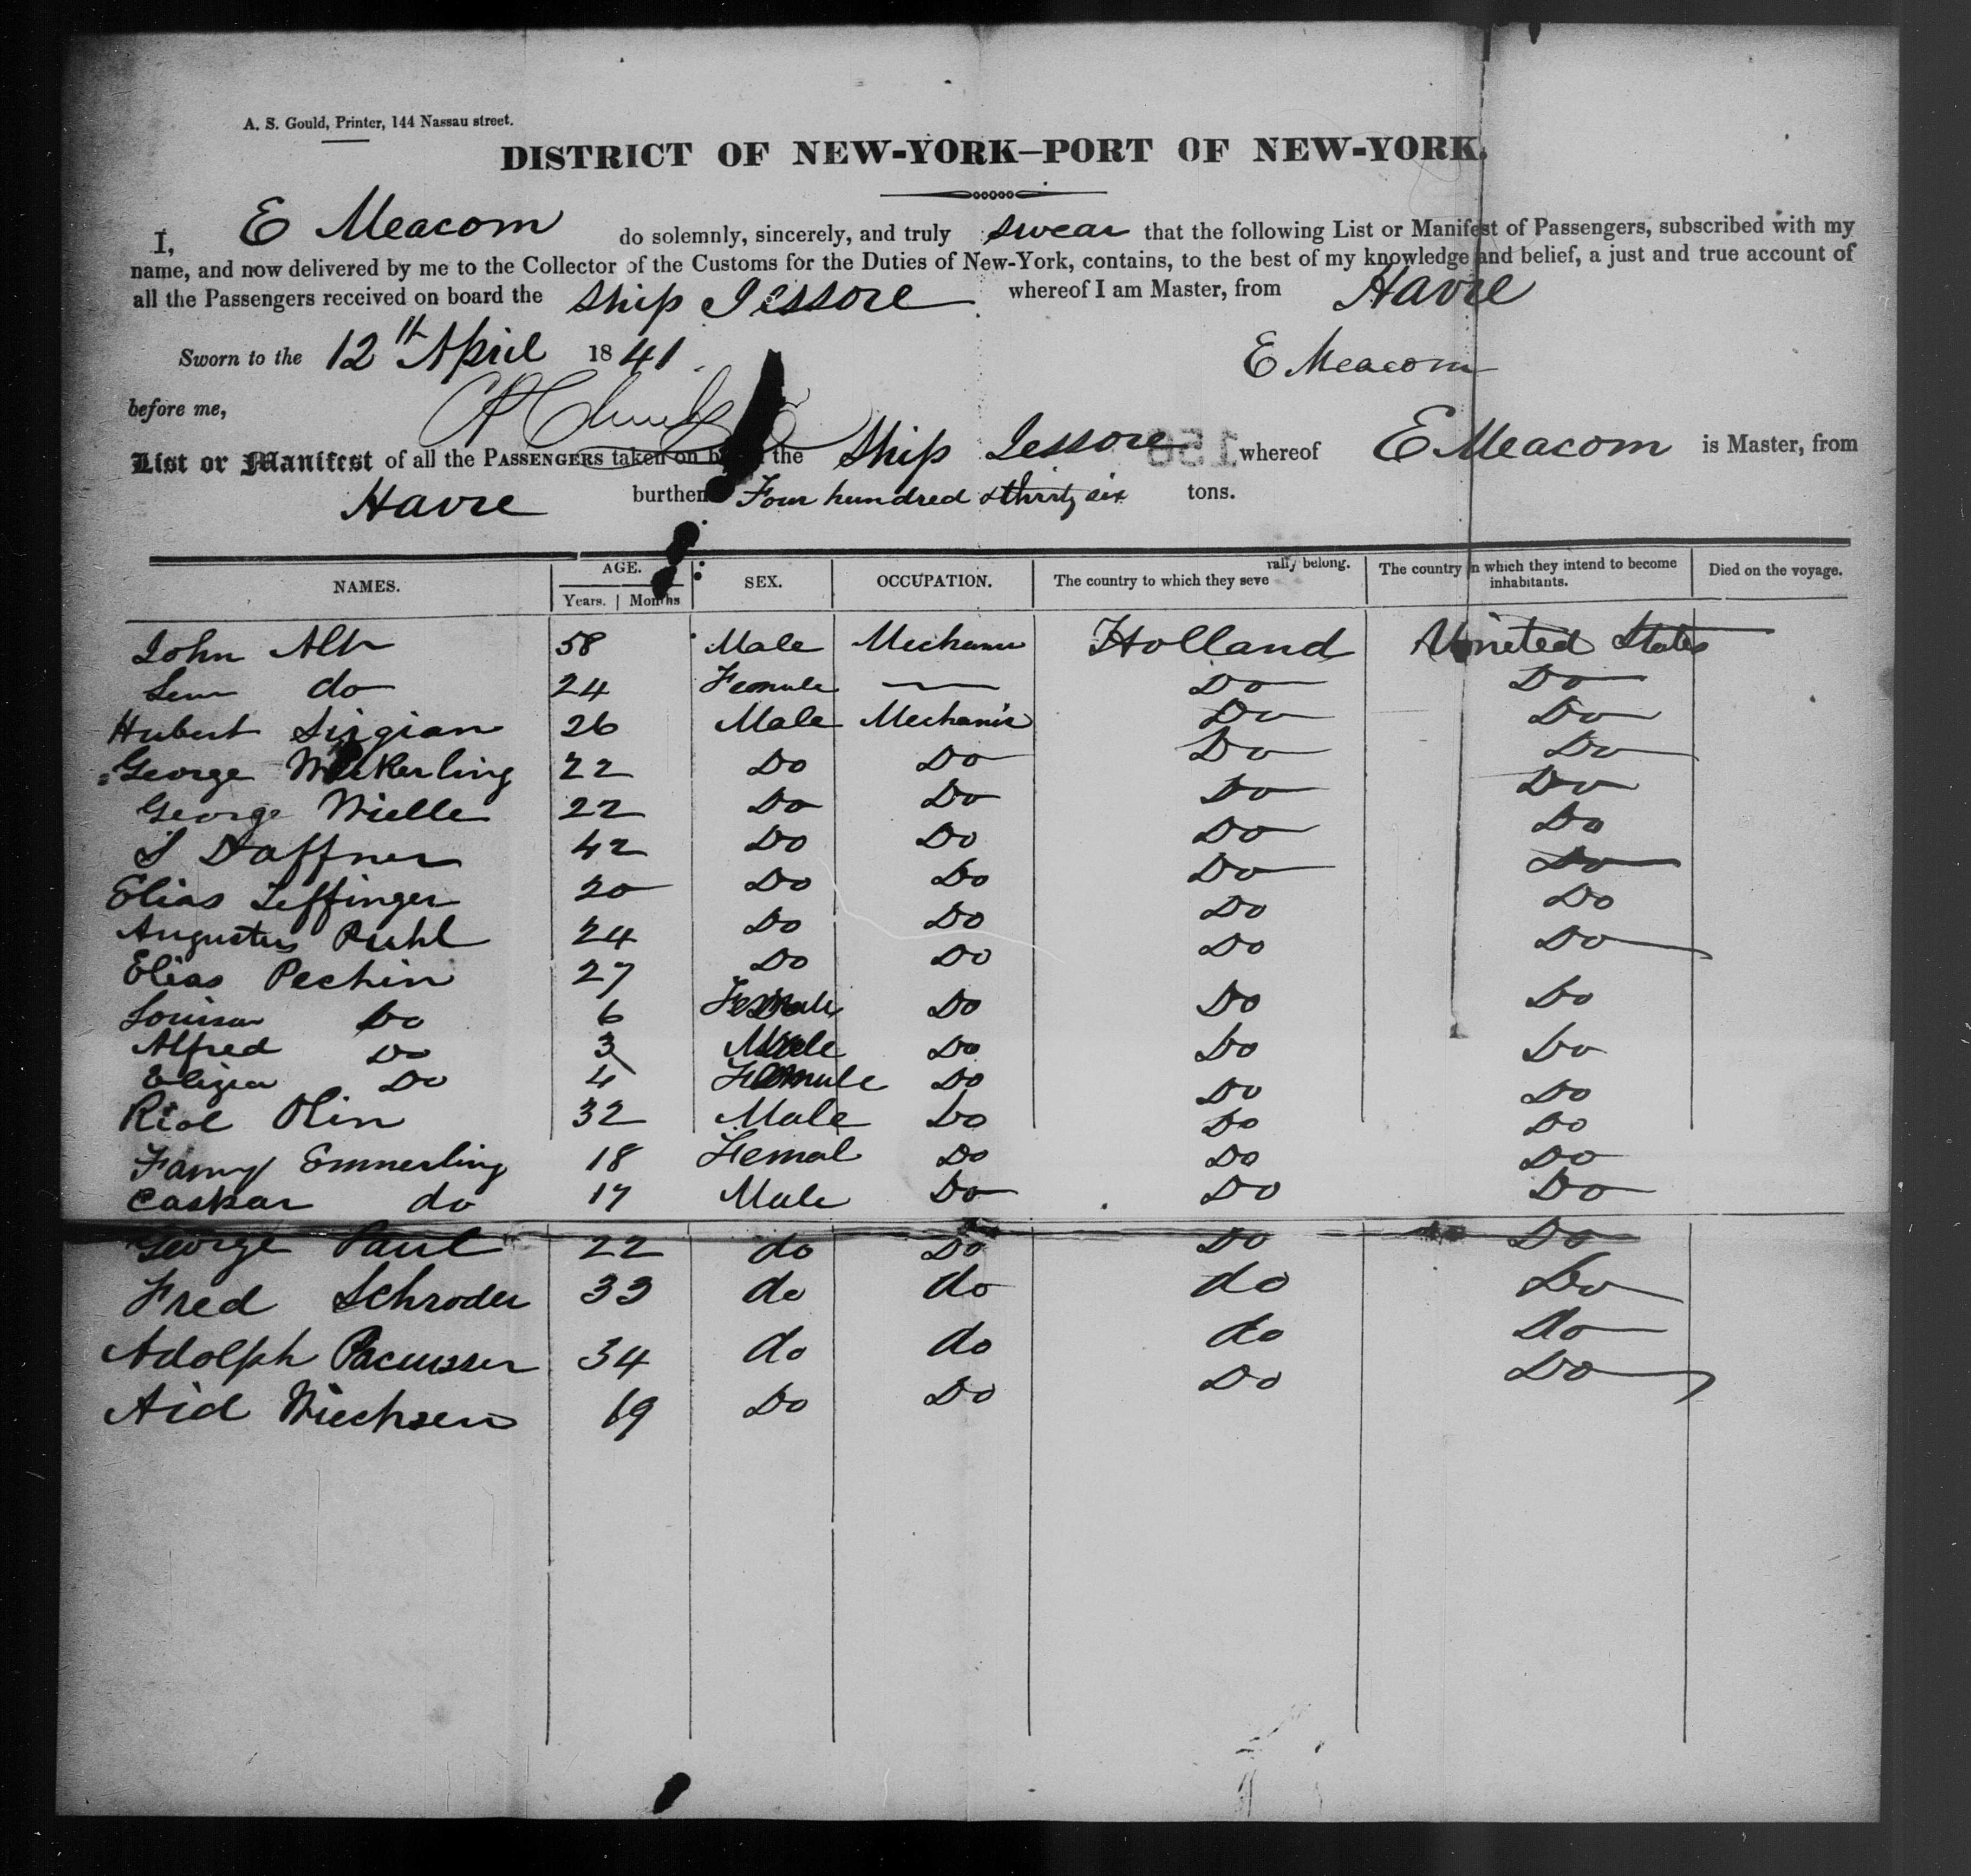 A. S. Gould, Printer, 144 Nassau street.
DISTRICT OF NEW-YORK–PORT OF NEW-YORK.
I, E Meacom do solemnly, sincerely, and truly swear that the following List or Manifest of Passengers, subscribed with my
name, and now delivered by me to the Collector of the Customs for the Duties of New-York, contains, to the best of my knowledge and belief, a just and true account of
all the Passengers received on board the Ship Jessore whereof I am Master, from Havre
Sworn to the 12th April 1841. E Meacom
before me,
List or Manifest of all the PASSENGERS taken on the Ship Jessore whereof E Meacom is Master, from
Havre burthen Four hundred & thirty six tons.
NAMES. AGE. Years. Months SEX. OCCUPATION. The country to which they severally belong. The country in which they intend to become inhabitants. Died on the voyage.
John 58 Male Mechanic Holland United States
do 24 Female Do Do
Hubert 26 Male Mechanic Do Do
George 22 Do Do Do Do
George Wielle 22 Do Do Do Do
42 Do Do Do Do
Elias 20 Do Do Do Do
Augustus Ruhl 24 Do Do Do Do
Elias Pechin 27 Do Do Do Do
Louisa Do 6 Female Do Do Do
Alfred Do 3 Male Do Do Do
Do 4 Female Do Do Do
Olin 32 Male Do Do Do
Fanny Emmerling 18 Femal Do Do Do
Caspar do 17 Male Do Do Do
George Paul 22 do Do Do Do
Fred Schroder 33 do do do Do
Adolph 34 do do do do
19 Do Do Do Do